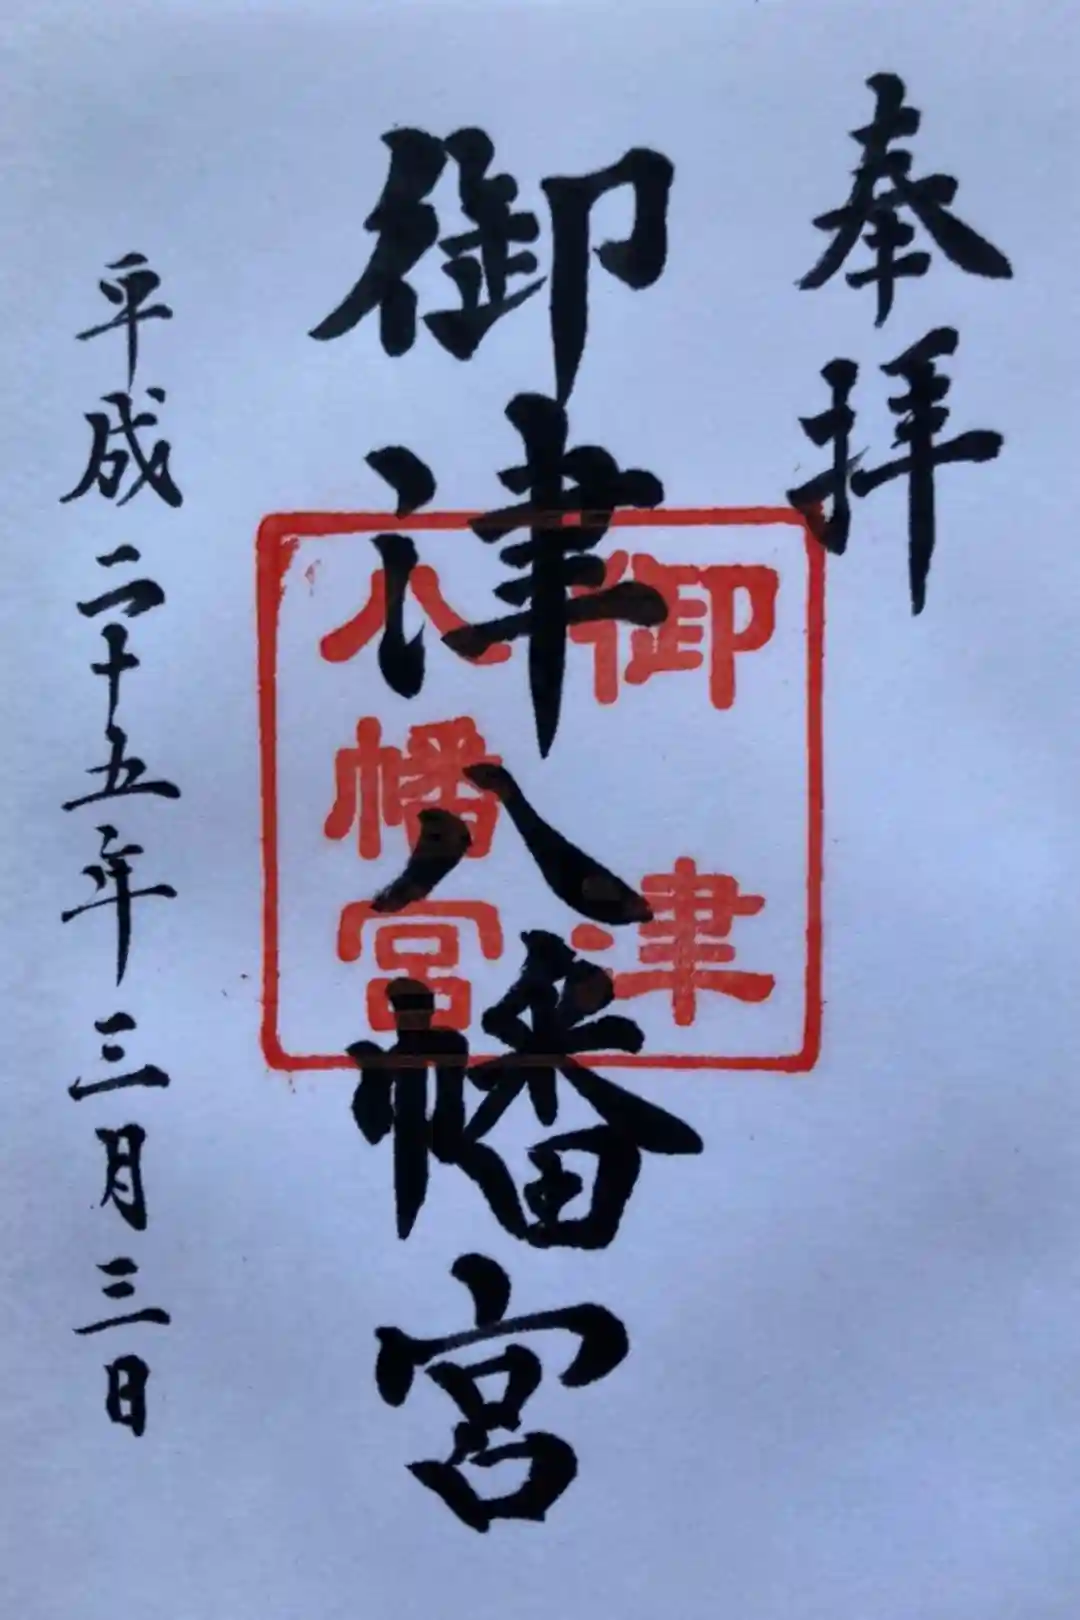 奉拝
御津八幡宮
御津
八幡宮
平成二十五年三月三日